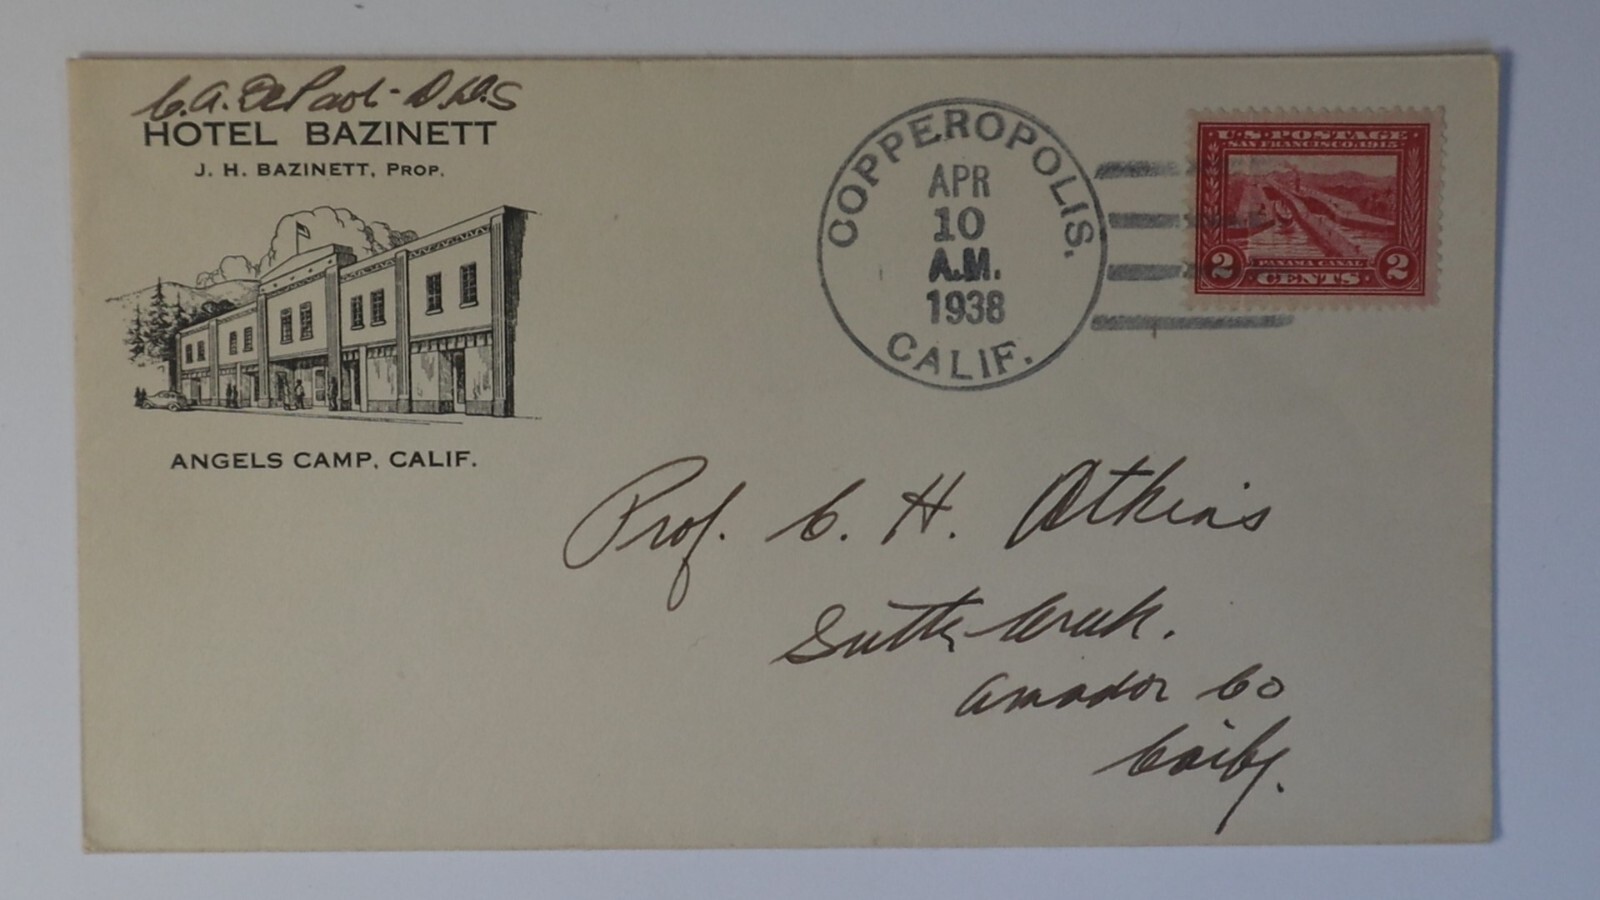 C. A. DePaoli - D.D.S
HOTEL BAZINETT
J. H. BAZINETT, PROP.
ANGELS CAMP, CALIF.
COPPEROPOLIS.
APR
10
A.M.
1938
CALIF.
U·S·POSTAGE
SAN FRANCISCO, 1915
PANAMA CANAL
2 CENTS 2
Prof. C. H. Atkins
Sutter Creek.
Amador Co
Calif.